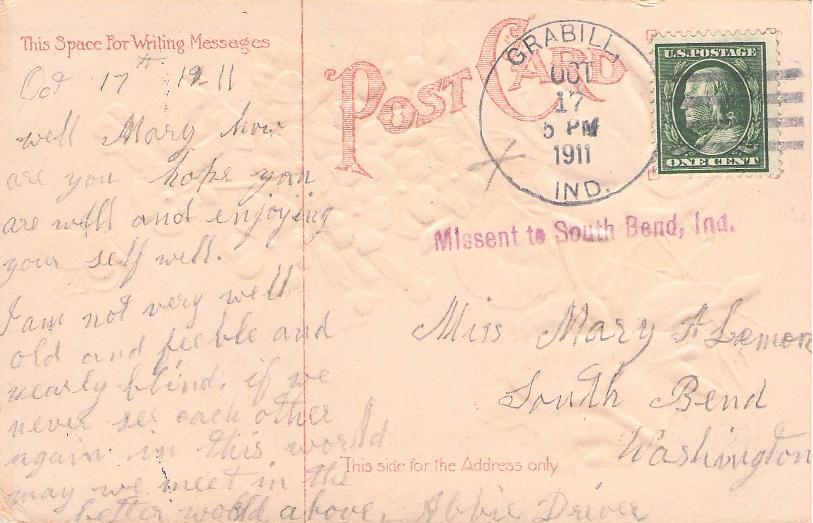 This Space For Writing Messages
POST CARD
GRABILL,
OCT
17
5 PM
1911
IND.
U.S. POSTAGE
ONE CENT
Missent to South Bend, Ind.
Oct 17th 1911
well Mary how
are you hope you
are well and enjoying
your self well.
I am not very well
old and feeble and
nearly blind. if we
never see each other
again in this world
may we meet in the
better world above.
Abbie Driver
Miss Mary A Lemon
South Bend
Washington
This side for the Address only